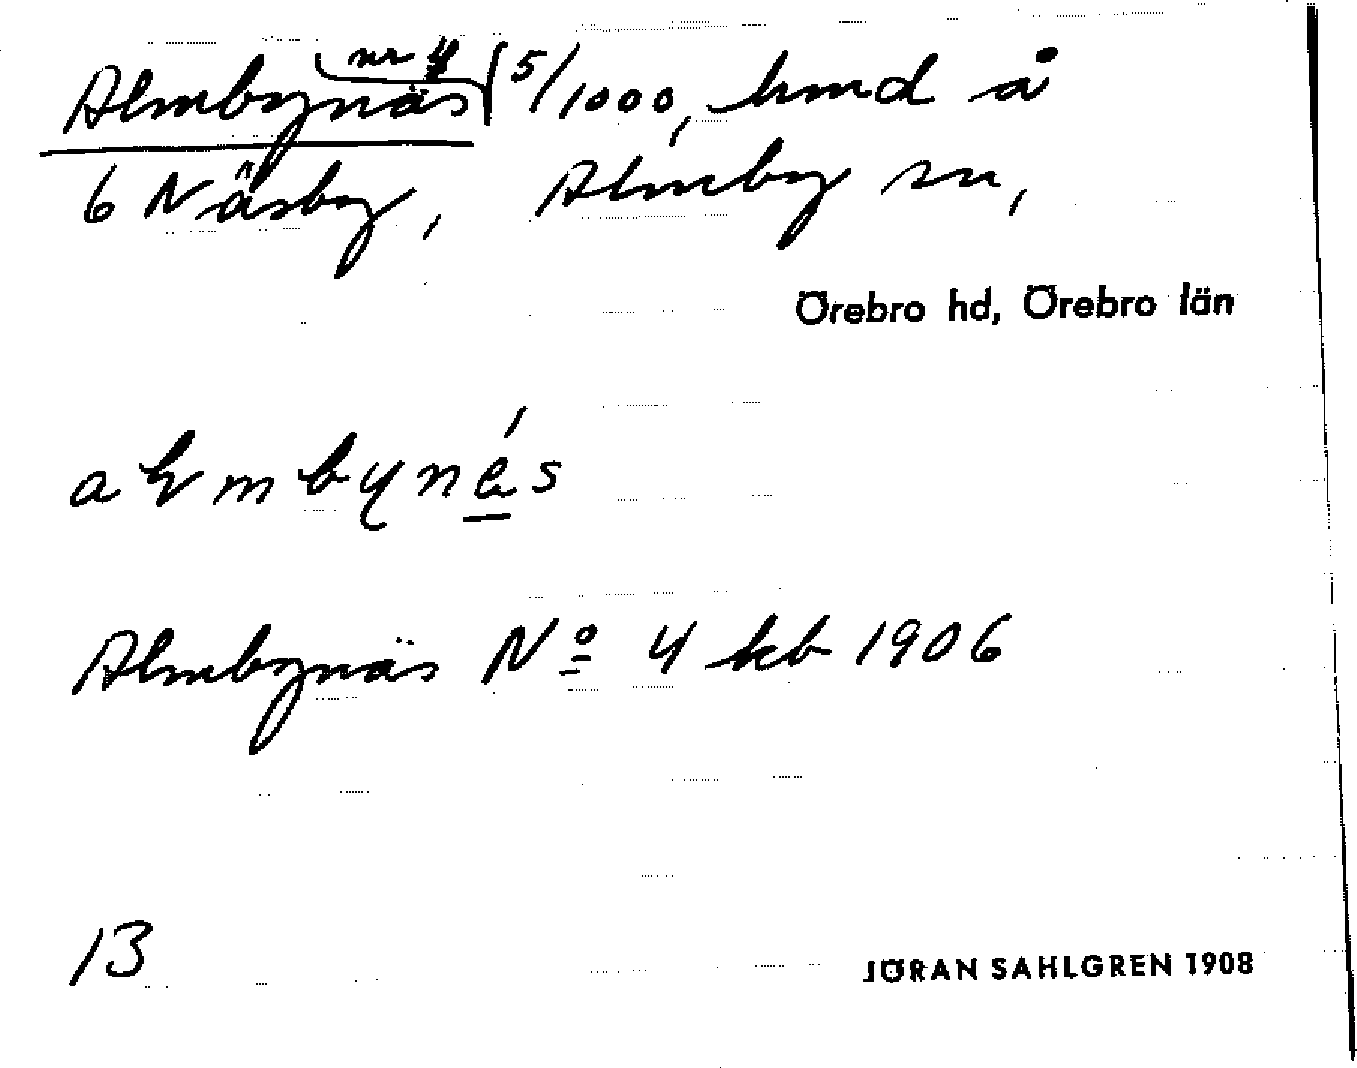 Almbynäs nr 4 5/1000, hmd å
6 Näsby, Almby sn,
Örebro hd, Örebro län
Almbynäs Nº 4 kb 1906
13
JÖRAN SAHLGREN 1908